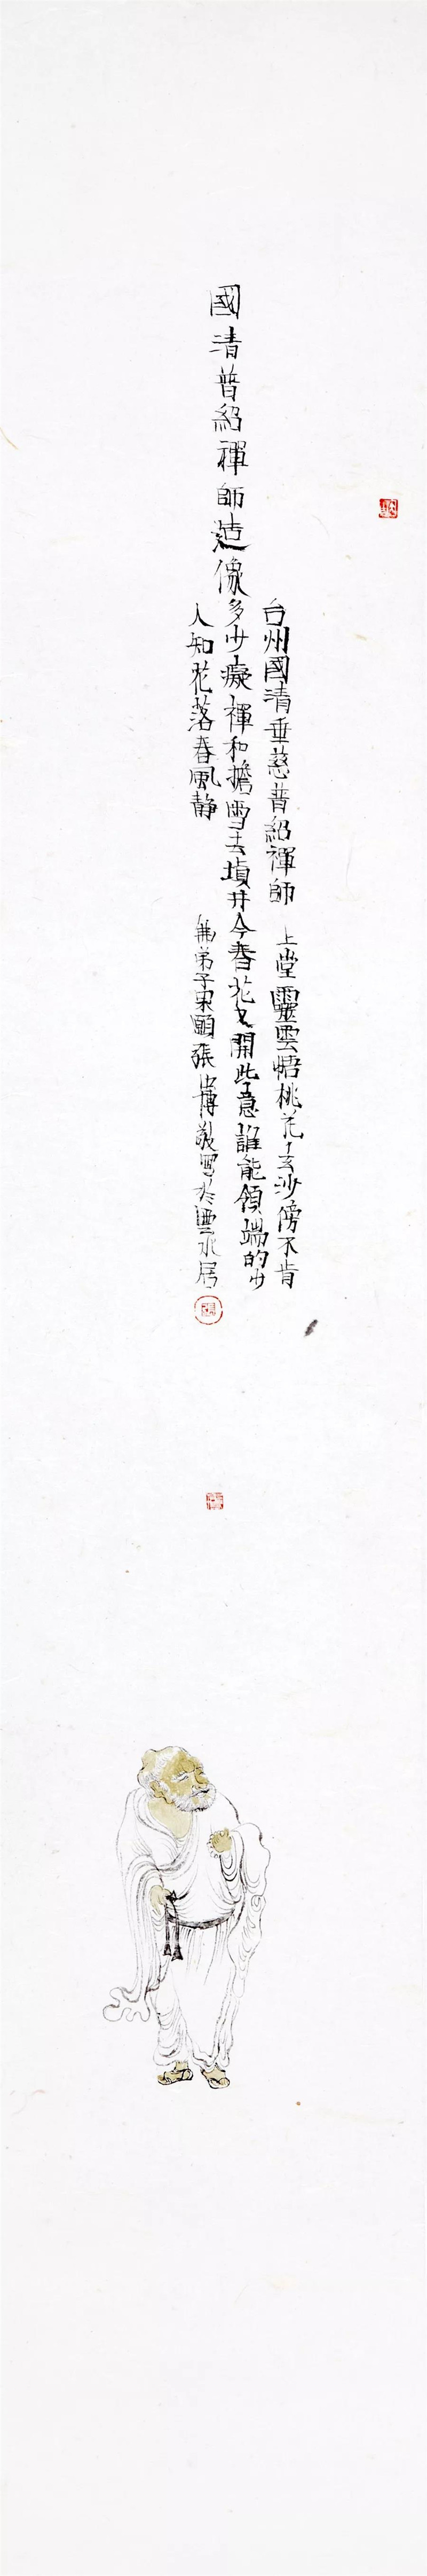 國清普紹禪師造像
台州國清垂慈普紹禪師 上堂靈雲悟桃花玄沙傍不肯
多少癡禪和擔雪去塡井今春花又開此意誰能領端的少
人知花落春風静
佛弟子宋願張 博敬寫於雲水居
張